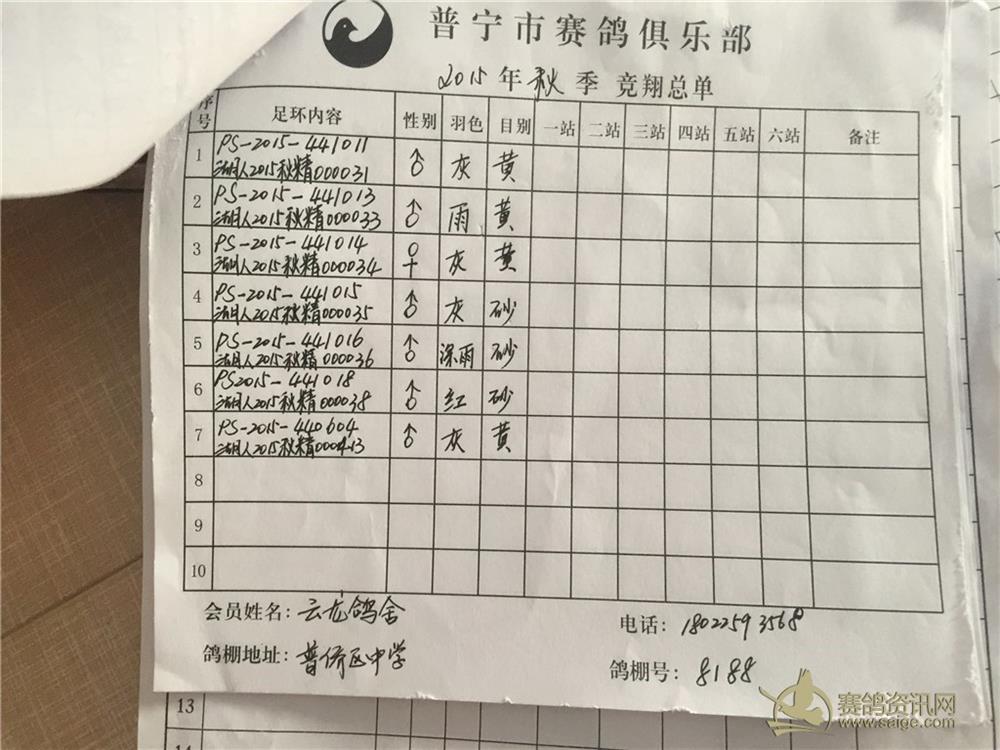 普宁市赛鸽俱乐部
2015年秋季 竞翔总单
序号 足环内容 性别 羽色 目别 一站 二站 三站 四站 五站 六站 备注
1 PS-2015-441011 ♂ 灰 黄
湖人2015秋精000031
2 PS-2015-441013 ♂ 雨 黄
湖人2015秋精000033
3 PS-2015-441014 ♀ 灰 黄
湖人2015秋精000034
4 PS-2015-441015 ♂ 灰 砂
湖人2015秋精000035
5 PS-2015-441016 ♂ 深雨 砂
湖人2015秋精000036
6 PS2015-441018 ♂ 红 砂
湖人2015秋精000038
7 PS-2015-440604 ♂ 灰 黄
湖人2015秋精000413
8
9
10
会员姓名：云龙鸽舍 电话：18022593568
鸽棚地址：普侨区中学 鸽棚号：8188
13
赛鸽资讯网
www.saige.com